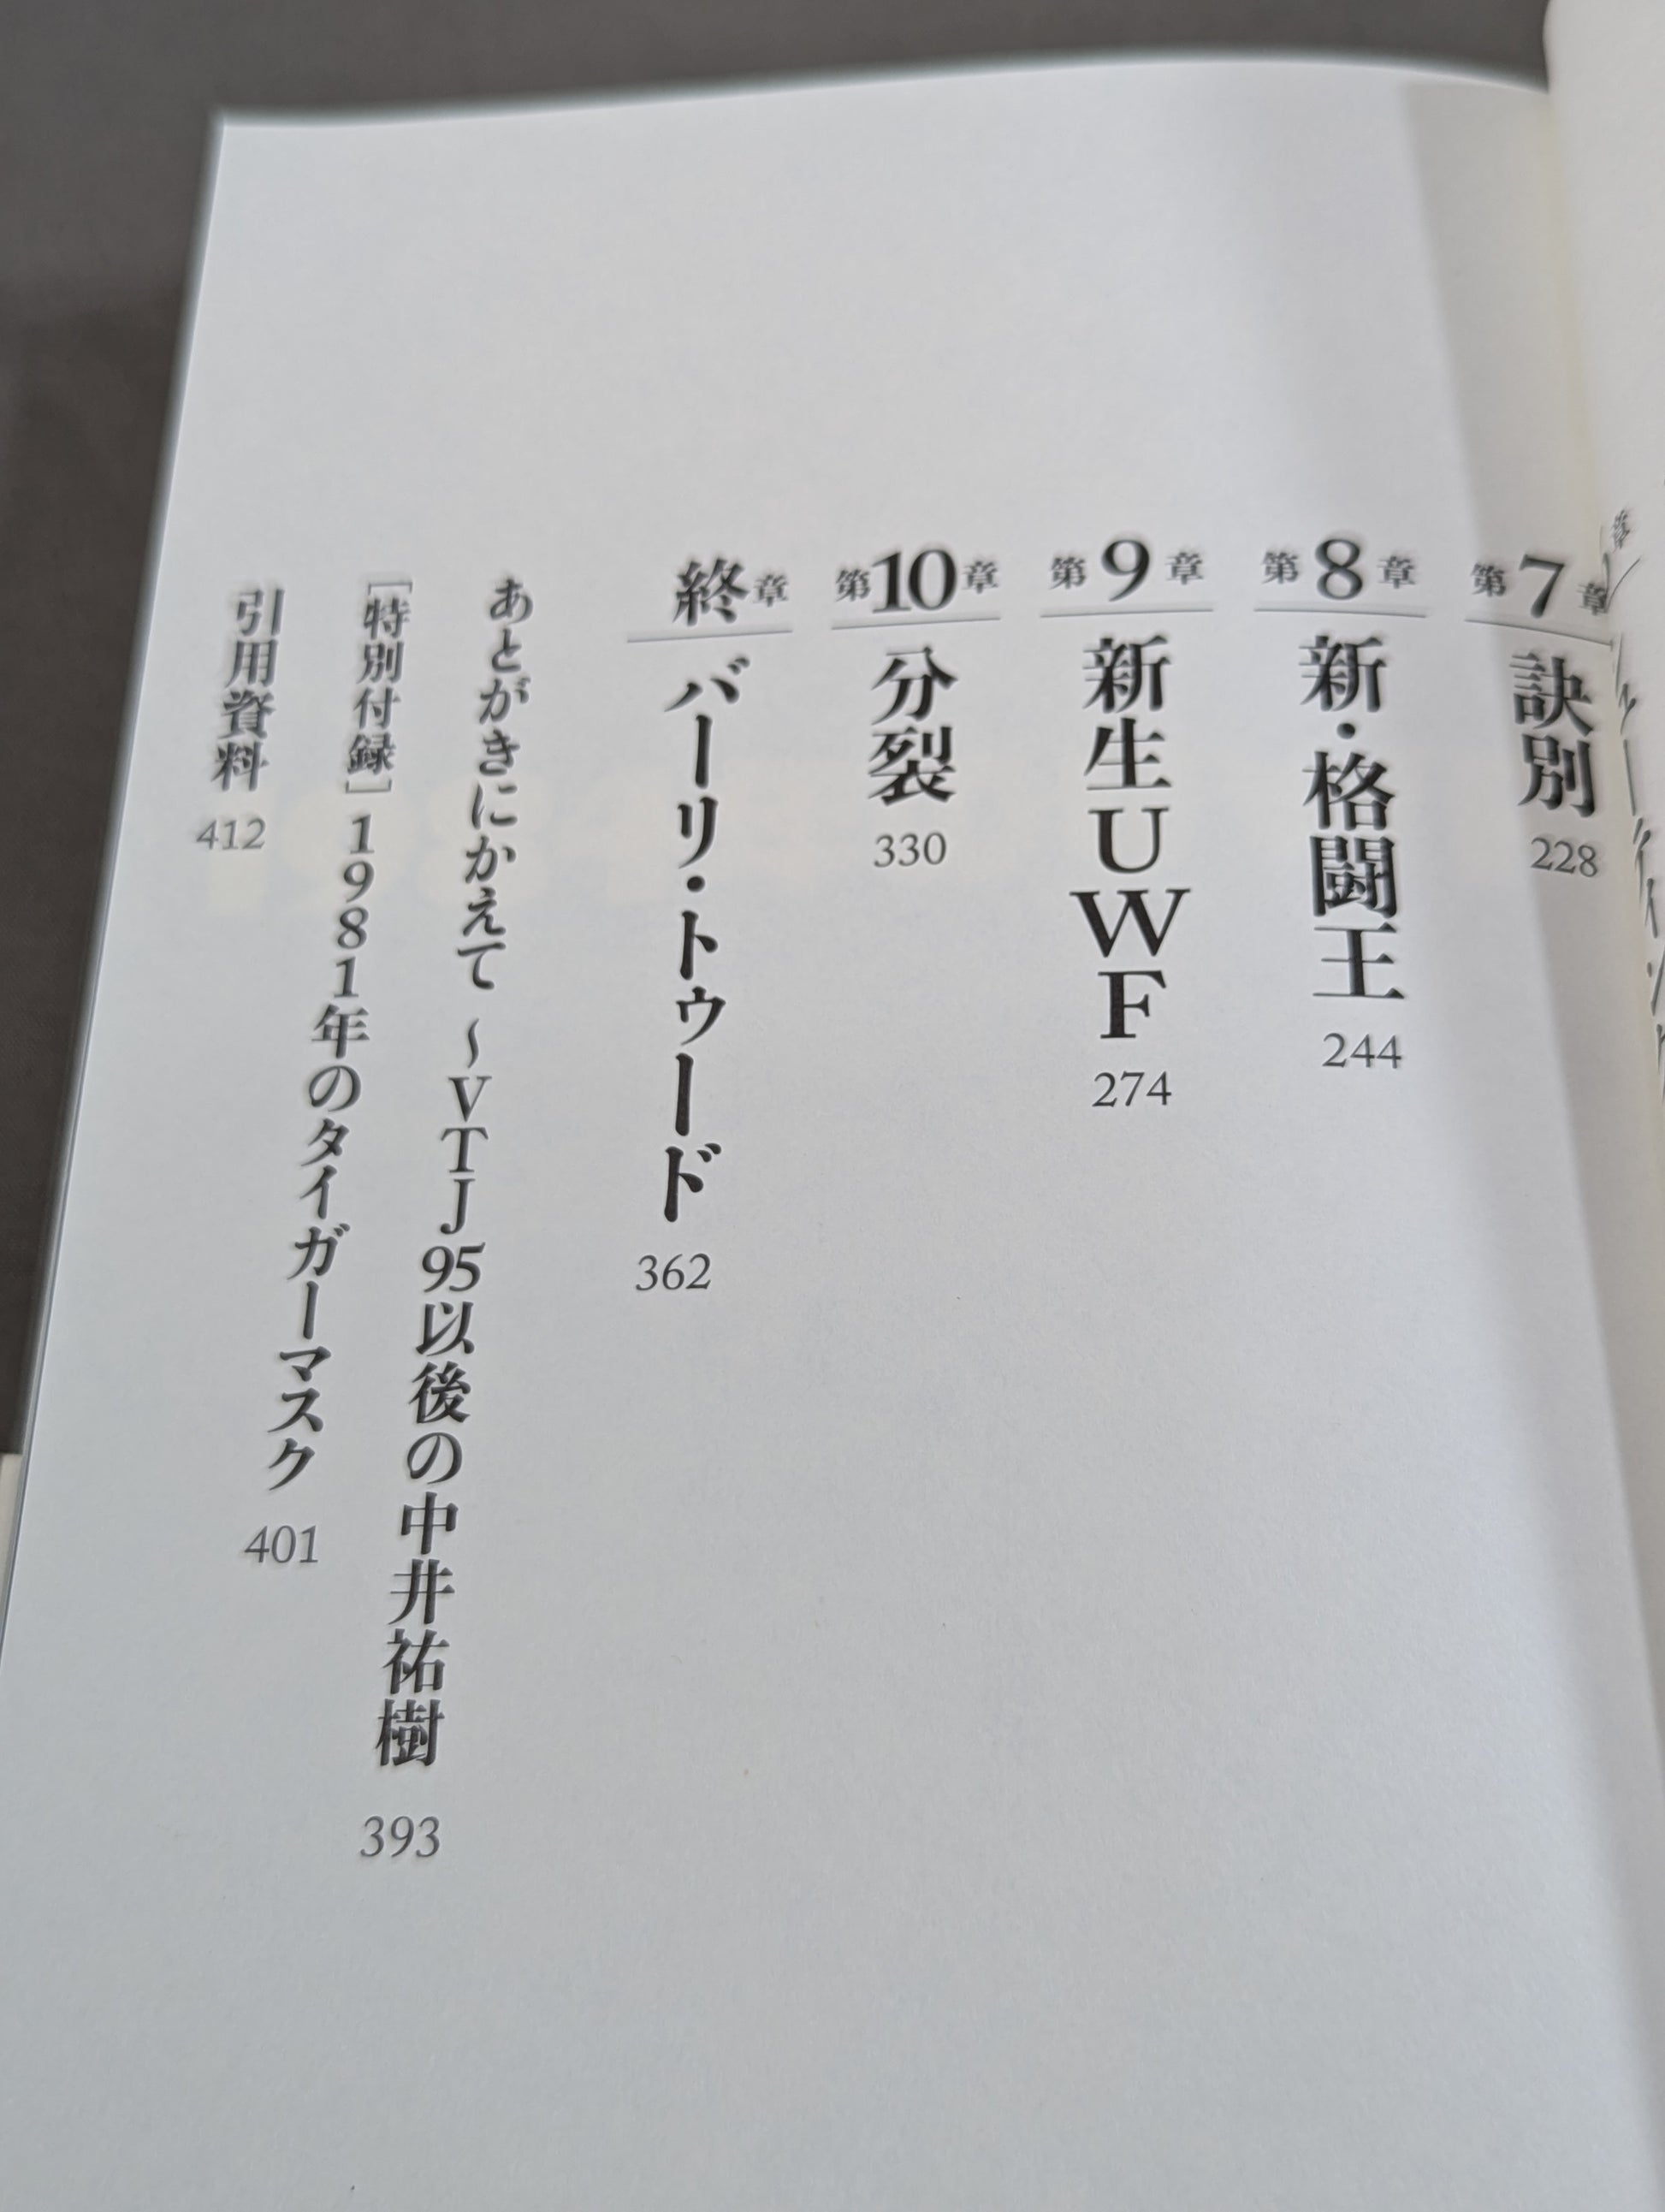 第7章 訣別 228
第8章 新・格闘王 244
第9章 新生UWF 274
第10章 分裂 330
終章 バーリ・トゥード 362
あとがきにかえて ～VTJ95以後の中井祐樹 393
［特別付録］1981年のタイガーマスク 401
引用資料 412